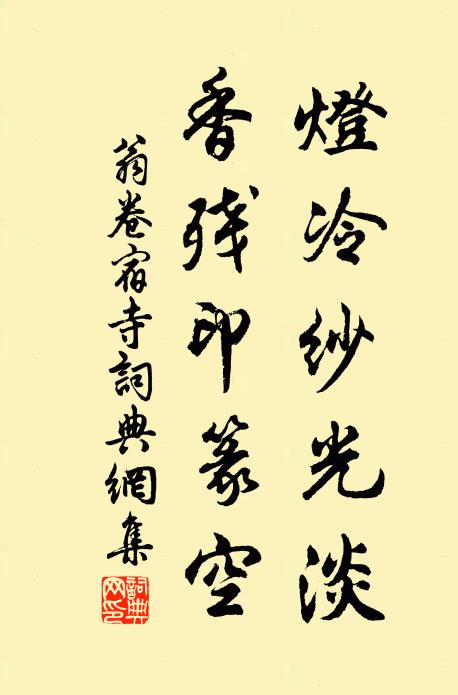 燈冷紗光淡
香殘印篆空
翁卷宿寺詞典網集
詞典網印